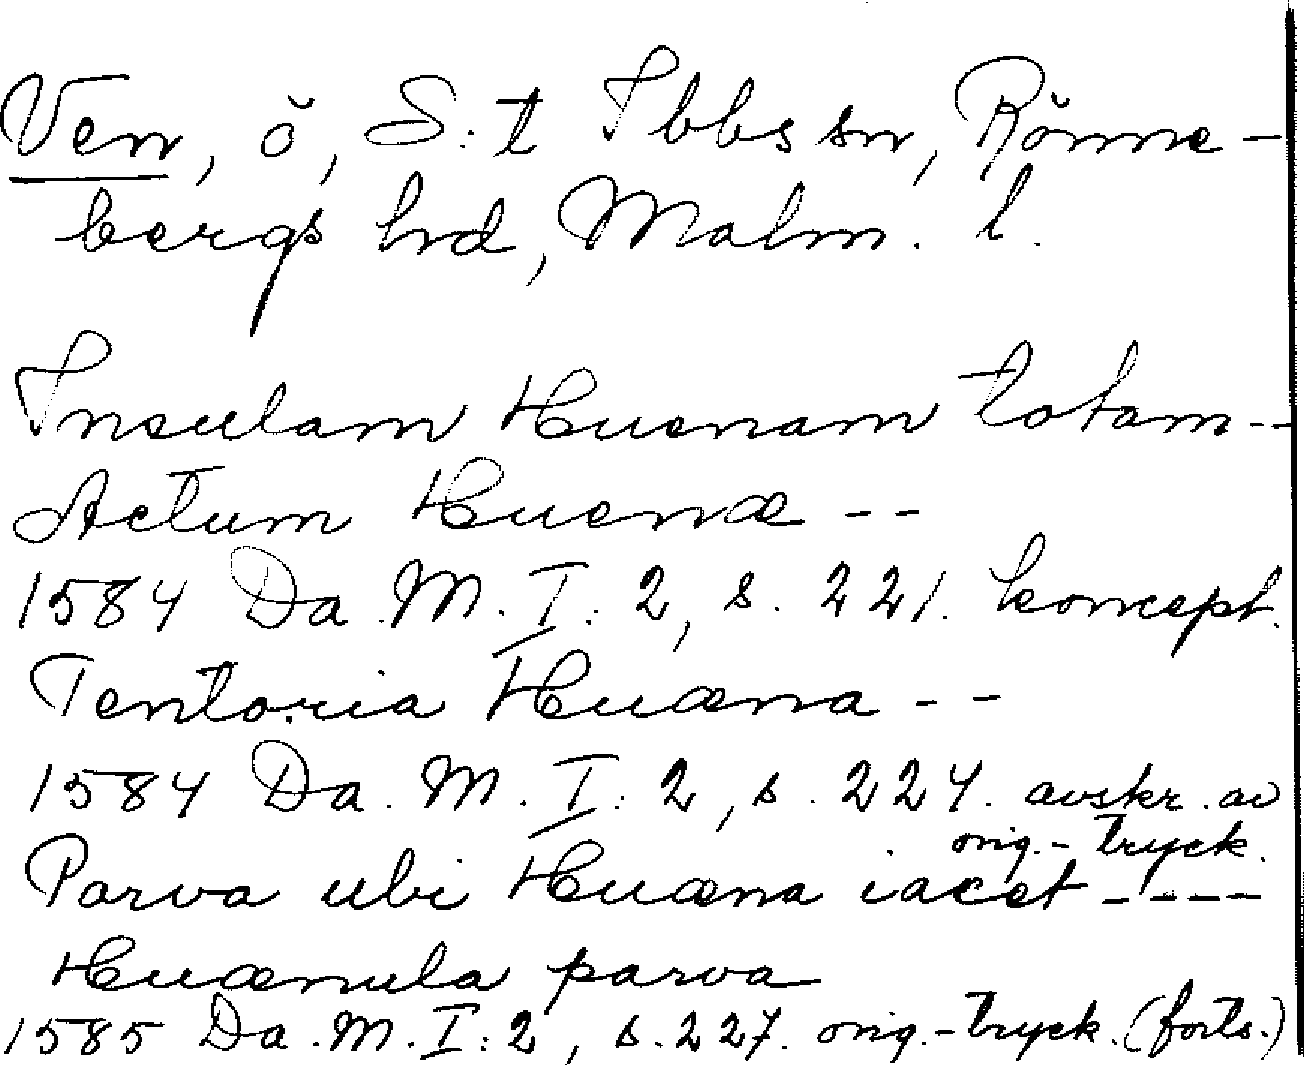 Ven, ö, S:t Ibbs sn, Rönne-
bergs hrd, Malm. l.
Insulam Huenam totam --
Actum Huenæ --
1584 Da. M. I: 2, s. 221. koncept.
Tentoria Huæna --
1584 Da. M. I: 2, s. 224. avskr. av
orig.-tryck.
Parva ubi Huæna iacet ----
Huænula parva
1585 Da. M. I: 2, s. 227. orig.-tryck. (forts.)